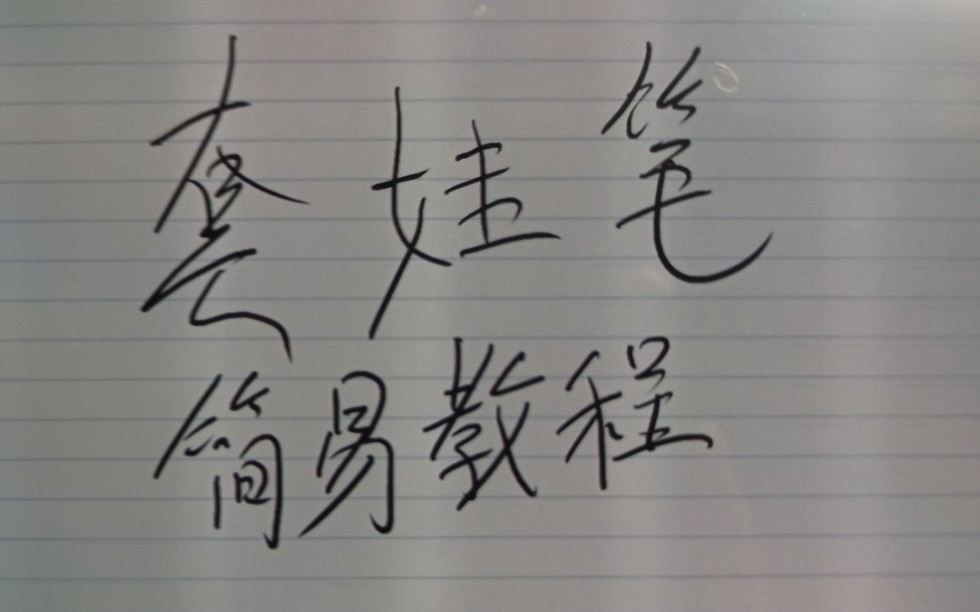 套娃笔
简易教程